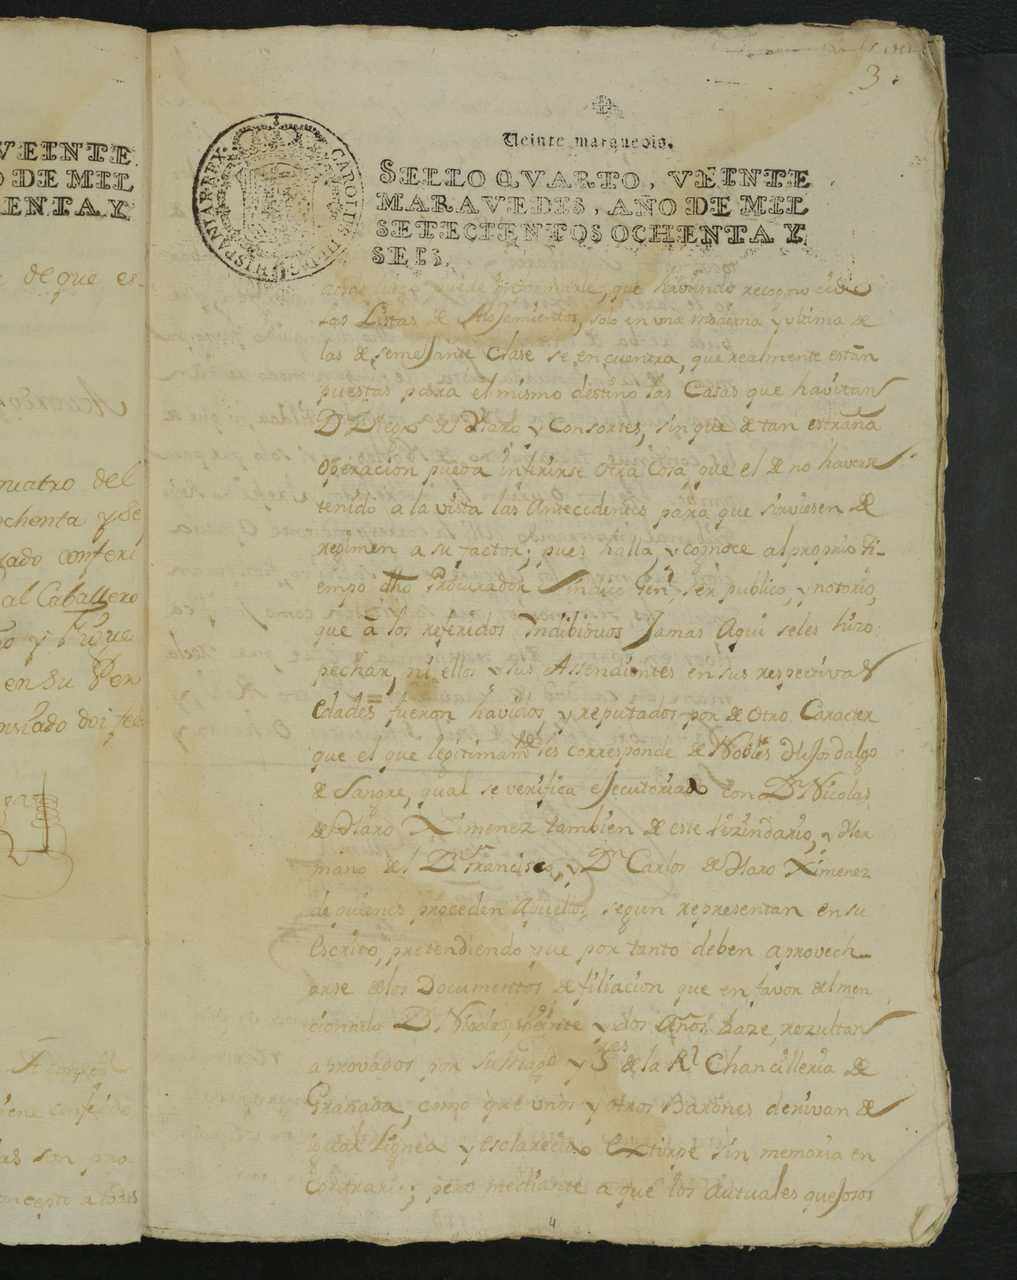 3.
Veinte maravedis.
SELLO QVARTO, VEINTE
MARAVEDIS, AÑO DE MIL
SETECIENTOS OCHENTA Y
SEIS.
CAROLUS III D G HISPANIAR REX
puede informarle, que haviendo reconocido
las Listas de Alojamientos, solo en una moderna y ultima de
las de semejante Clase se encuentra, que realmente están
puestas para el mismo destino las Casas que havitan
Dn Diego de Haro y Consortes, sin que de tan estraña
Operacion pueda inferirse otra Cosa que el de no haverse
tenido a la vista las Antecedentes para que sirviesen de
regimen a su factor; pues halla, y conoce al proprio ti-
empo dho Procurador Sindico Gen. ser publico, y notorio,
que â los referidos Yndibiduos Jamas Aqui seles hizo
pechar, ni ellos y sus Assendientes en sus respectivas
Edades fueron havidos y reputados por de otro Caracter
que el que legitimamte les corresponde de Nobles Hijosdalgo
de Sangre, qual se verifica ejecutoriado con Dn Nicolas
de Haro Ximenez tambien de este Vezindario, y Her
mano del Dn Francisco, y Dn Carlos de Haro Ximenez
de quienes proceden Aquellos, segun representan en su
Escrito, pretendiendo que por tanto deben aprovech-
arse de los Documentos de filiacion que en favor del men
cionado Dn Nicolas, Veinte y dos Años haze, rezultan
aprovados por su Magd y Sres de la Rl Chancilleria de
Granada, como que unos y otros Barones derivan de
igual Lignea y esclarecida Extirpe sin memoria en
Contrario; pero mediante a que los Autuales quejosos
4
VEINTE
O DE MIL
ENTA Y
de que es-
quatro del
ochenta y se
al Caballero
en su Per